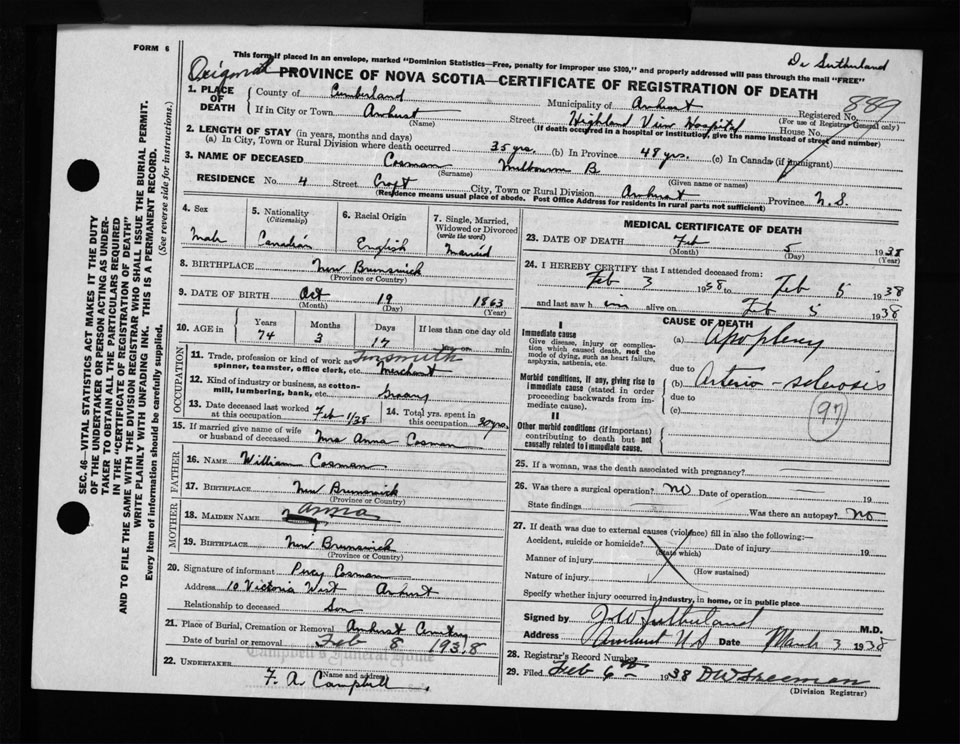 FORM 6
This form if placed in an envelope, marked "Dominion Statistics—Free, penalty for improper use $300," and properly addressed will pass through the mail "FREE"
Dr Sutherland
Original PROVINCE OF NOVA SCOTIA—CERTIFICATE OF REGISTRATION OF DEATH
1. PLACE OF DEATH
County of Cumberland Municipality of Amherst Registered No. 889
(For use of Registrar General only)
If in City or Town Amherst Street Highland View Hospital House No.
(Name) (If death occurred in a hospital or institution, give the name instead of street and number)
2. LENGTH OF STAY (in years, months and days)
(a) In City, Town or Rural Division where death occurred 35 yrs. (b) In Province 48 yrs. (c) In Canada (if immigrant)
3. NAME OF DECEASED Cosman Milbourn B.
(Surname) (Given name or names)
RESIDENCE No. 4 Street Croft City, Town or Rural Division Amherst Province N.S.
(Residence means usual place of abode. Post Office Address for residents in rural parts not sufficient)
4. Sex Male
5. Nationality (Citizenship) Canadian
6. Racial Origin English
7. Single, Married, Widowed or Divorced (write the word) Married
8. BIRTHPLACE New Brunswick
(Province or Country)
9. DATE OF BIRTH Oct 19 1863
(Month) (Day) (Year)
10. AGE in Years 74 Months 3 Days 17 If less than one day old
hrs. or min.
OCCUPATION
11. Trade, profession or kind of work as spinner, teamster, office clerk, etc. Tinsmith Merchant
12. Kind of industry or business, as cotton-mill, lumbering, bank, etc.
13. Date deceased last worked at this occupation Feb 1/38
14. Total yrs. spent in this occupation 30 yrs.
15. If married give name of wife or husband of deceased Mrs Anna Cosman
FATHER
16. NAME William Cosman
17. BIRTHPLACE New Brunswick
(Province or Country)
MOTHER
18. MAIDEN NAME Anna
19. BIRTHPLACE New Brunswick
(Province or Country)
20. Signature of informant Percy Cosman
Address 10 Victoria West Amherst
Relationship to deceased Son
21. Place of Burial, Cremation or Removal Amherst Cemetery
Date of burial or removal Feb 8 1938
Campbell's Funeral Home
22. UNDERTAKER
Name and address
F. A. Campbell
MEDICAL CERTIFICATE OF DEATH
23. DATE OF DEATH Feb 5 1938
(Month) (Day) (Year)
24. I HEREBY CERTIFY that I attended deceased from:
Feb 3 1938 to Feb 5 1938
and last saw him alive on Feb 5 1938
CAUSE OF DEATH
I
Immediate cause
Give disease, injury or complication which caused death, not the mode of dying, such as heart failure, asphyxia, asthenia, etc.
(a) Apoplexy
due to
Morbid conditions, if any, giving rise to immediate cause (stated in order proceeding backwards from immediate cause).
(b) Arterio-sclerosis
due to
(c)
(97)
II
Other morbid conditions (if important) contributing to death but not causally related to immediate cause.
25. If a woman, was the death associated with pregnancy?
26. Was there a surgical operation? No Date of operation 19
State findings Was there an autopsy? No
27. If death was due to external causes (violence) fill in also the following:—
Accident, suicide or homicide? Date of injury 19
(State which)
Manner of injury
(How sustained)
Nature of injury
Specify whether injury occurred in industry, in home, or in public place
Signed by J W Sutherland M.D.
Address Amherst N S Date March 3 1938
28. Registrar's Record Number
29. Filed Feb 6th 1938 D W Freeman
(Division Registrar)
SEC. 46—VITAL STATISTICS ACT MAKES IT THE DUTY
OF THE UNDERTAKER OR PERSON ACTING AS UNDER-
TAKER TO OBTAIN ALL THE PARTICULARS REQUIRED
IN THE "CERTIFICATE OF REGISTRATION OF DEATH"
AND TO FILE THE SAME WITH THE DIVISION REGISTRAR WHO SHALL ISSUE THE BURIAL PERMIT.
WRITE PLAINLY WITH UNFADING INK. THIS IS A PERMANENT RECORD.
Every item of information should be carefully supplied.
(See reverse side for instructions.)